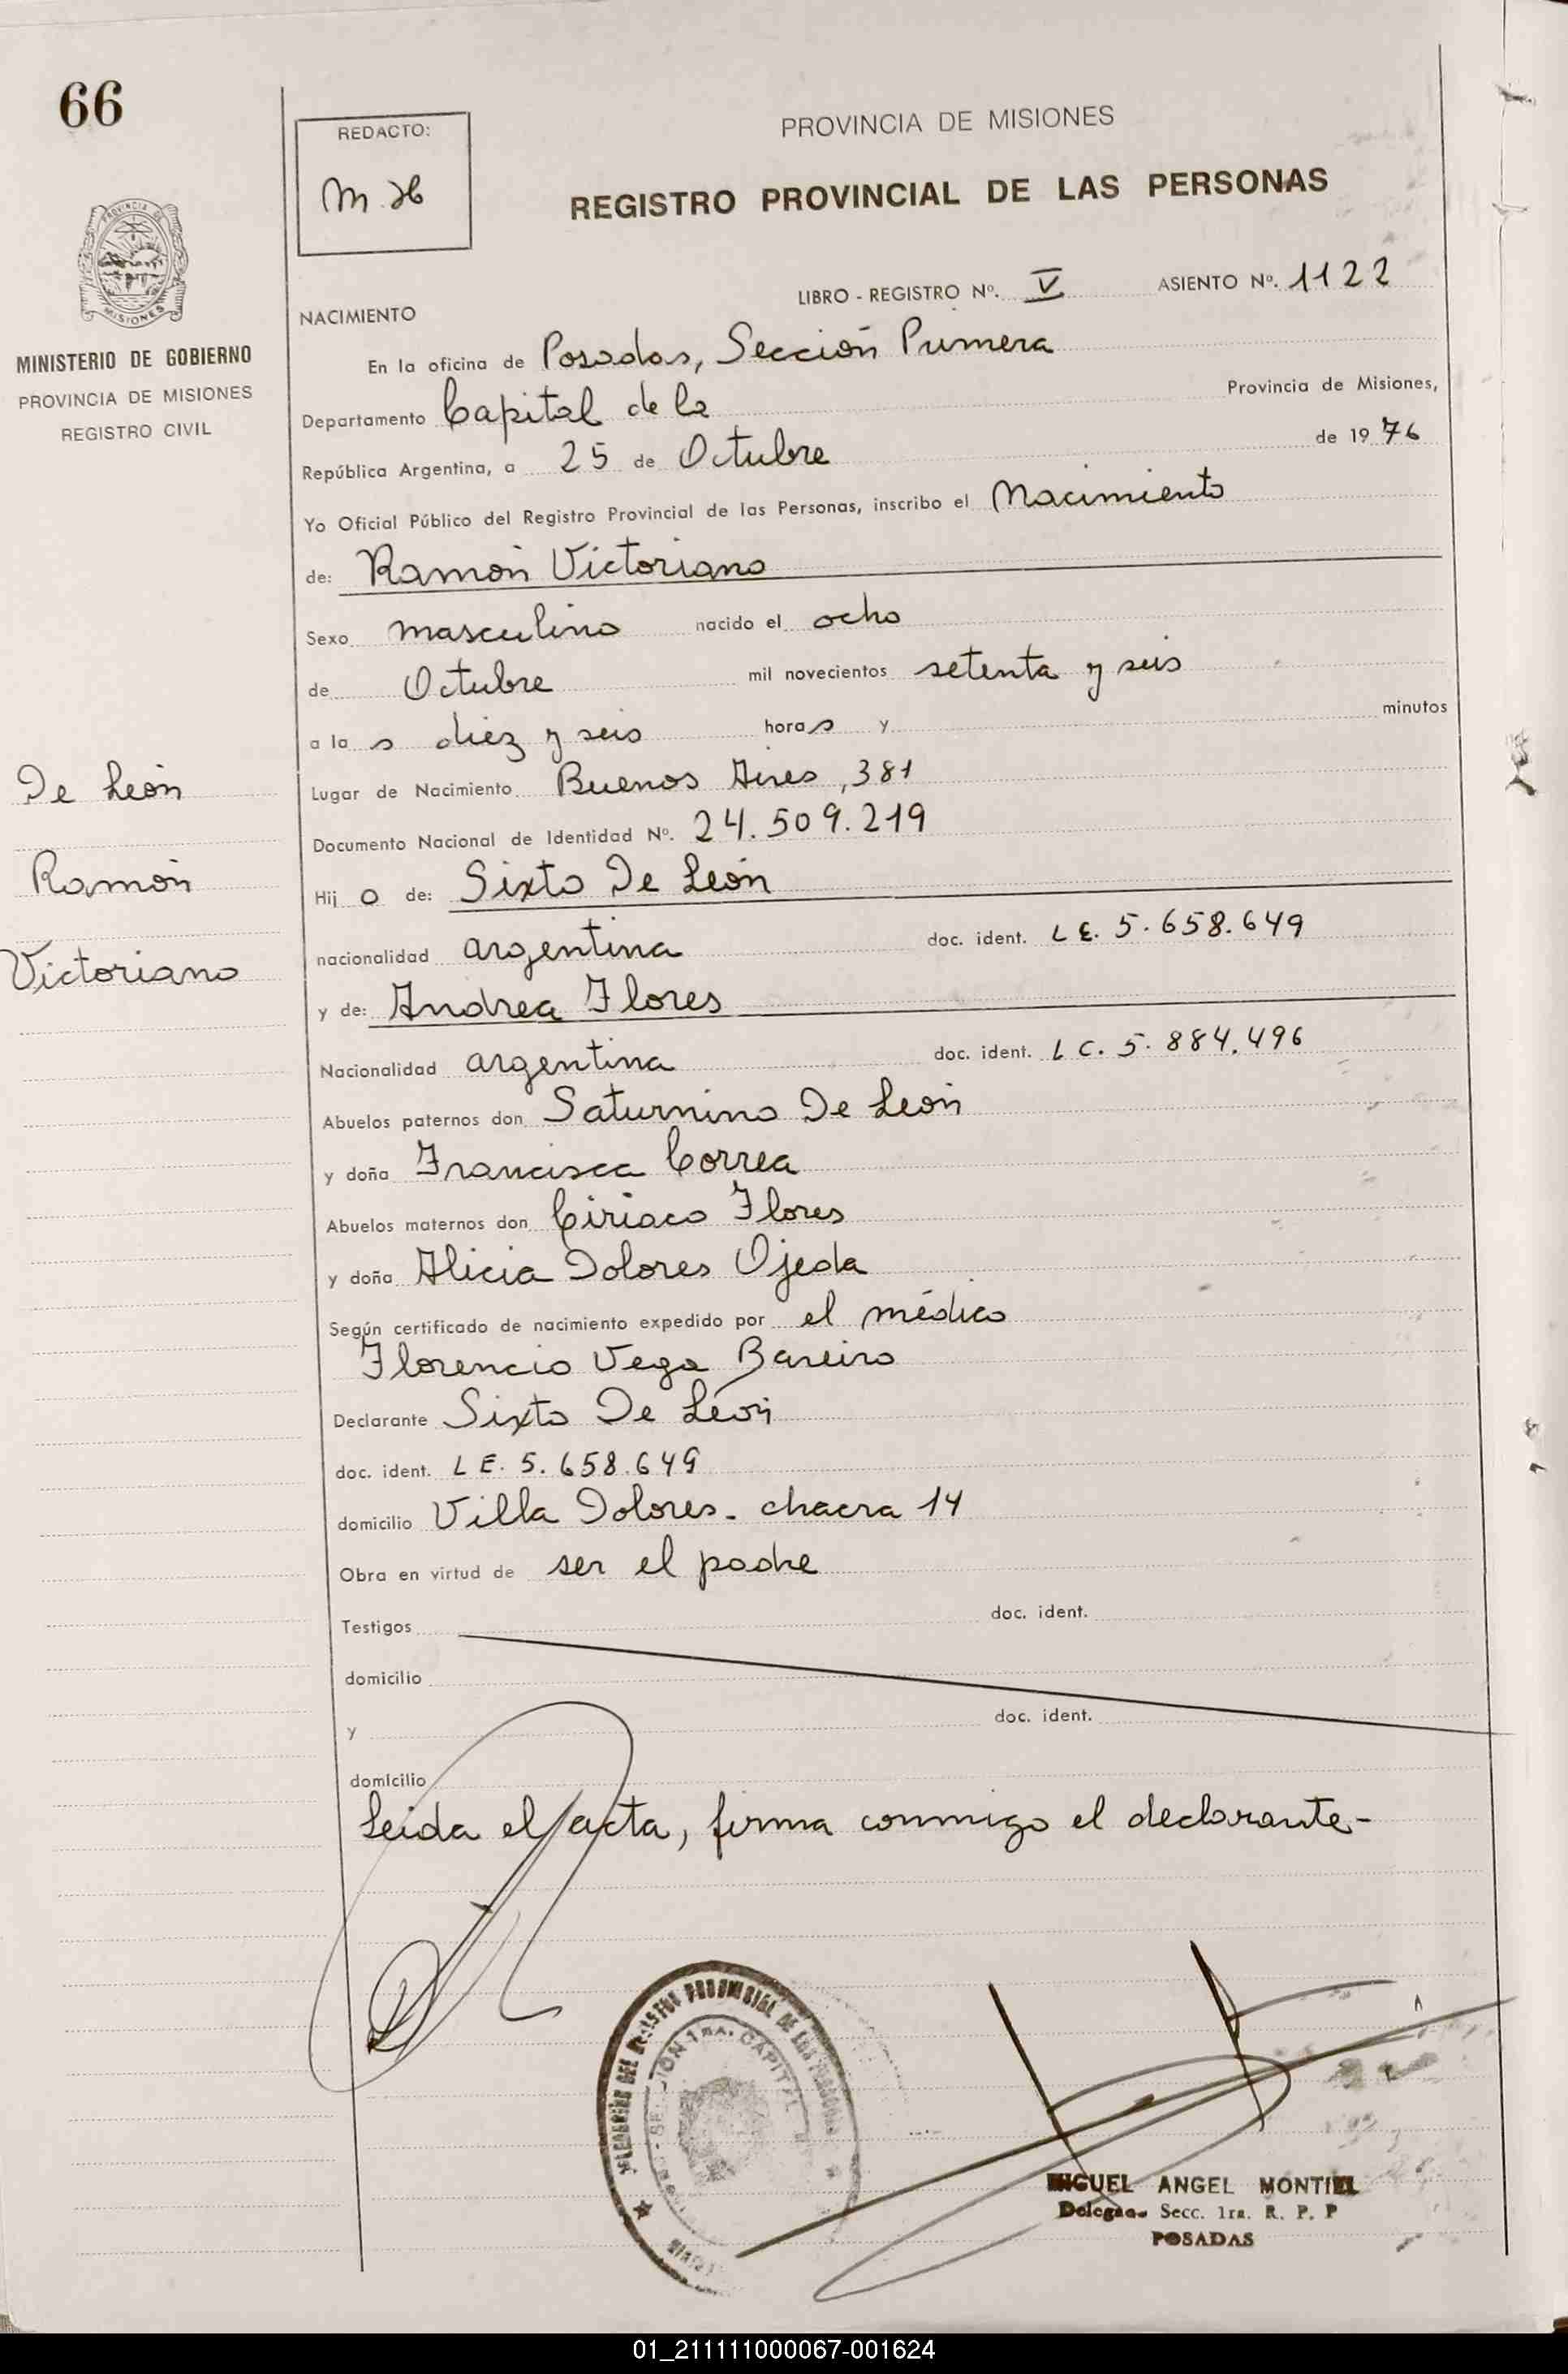 66
REDACTO:
M.H
PROVINCIA DE MISIONES
REGISTRO PROVINCIAL DE LAS PERSONAS
PROVINCIA DE
MISIONES
MINISTERIO DE GOBIERNO
PROVINCIA DE MISIONES
REGISTRO CIVIL
De León
Ramón
Victoriano
LIBRO - REGISTRO Nº. V ASIENTO Nº. 1122
NACIMIENTO
En la oficina de Posadas, Sección Primera
Departamento Capital de la Provincia de Misiones,
República Argentina, a 25 de Octubre de 1976
Yo Oficial Público del Registro Provincial de las Personas, inscribo el Nacimiento
de: Ramón Victoriano
Sexo masculino nacido el ocho
de Octubre mil novecientos setenta y seis
a las diez y seis horas y minutos
Lugar de Nacimiento Buenos Aires, 381
Documento Nacional de Identidad Nº. 24.509.219
Hijo de: Sixto De León
nacionalidad argentina doc. ident. L E. 5.658.649
y de: Andrea Flores
Nacionalidad argentina doc. ident. L C. 5.884.496
Abuelos paternos don Saturnino De León
y doña Francisca Correa
Abuelos maternos don Ciriaco Flores
y doña Alicia Dolores Ojeda
Según certificado de nacimiento expedido por el médico
Florencio Vega Bareiro
Declarante Sixto De León
doc. ident. L E. 5.658.649
domicilio Villa Dolores - chacra 14
Obra en virtud de ser el padre
Testigos doc. ident.
domicilio
y doc. ident.
domicilio
Leida el acta, firma conmigo el declarante-
DEL REGISTRO PROVINCIAL DE LAS PERSONAS
1RA. CAPITAL
MIGUEL ANGEL MONTIEL
Delegado Secc. 1ra. R. P. P
POSADAS
01_211111000067-001624